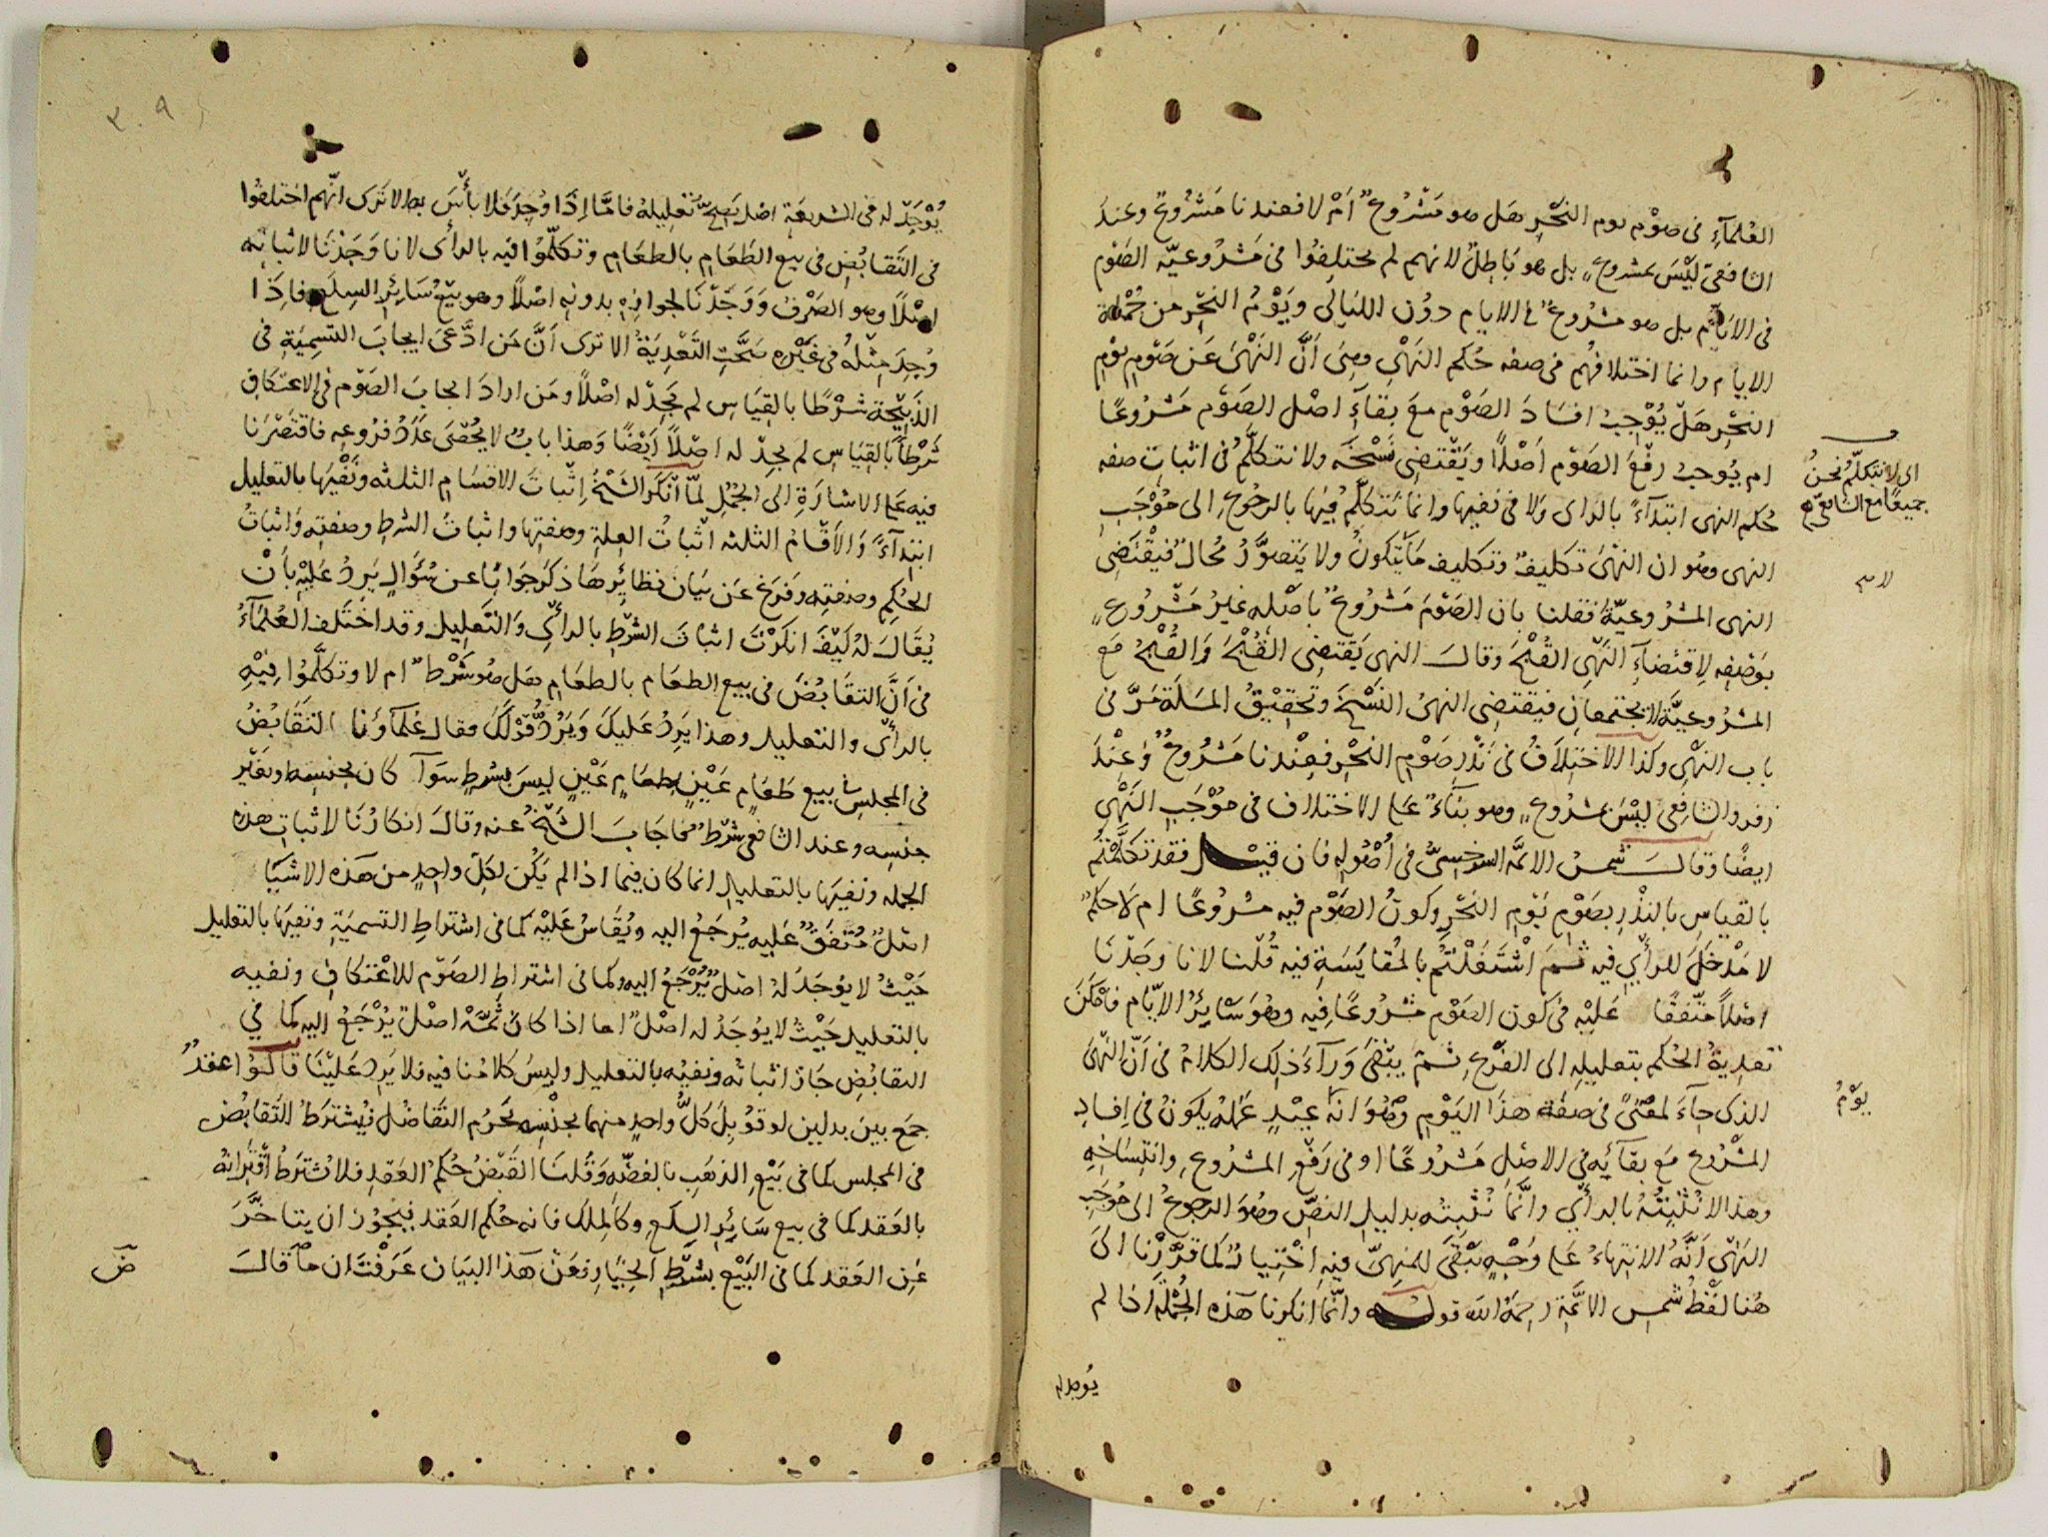 العُلمآءِ في صوْم يوم النحْرِ هَل هو مَشْرُوعٌ اَمْ لا فعندنا مَشْرُوعٌ وعند
الشافعيّ لَيْسَ بمشروعٍ بل هو بَاطِلٌ لانهم لم يختلِفُوا في مَشْرُوعيّة الصَوْم
في الايّام بل هو مشْرُوعٌ في الايام دوُن الليَالي ويَوْمُ النحْر من جُمْلة
الايام وانما اختلافُهم في صفه حُكم النهْي وهِيَ اَنَّ النَهْىَ عَن صَوْمِ يوْمِ
النحْرِ هَلْ يُوْجِبُ افسَادَ الصَوْم معَ بقآءِ اصْل الصَوْم مَشْرُوعًا
ام يُوجبُ رفْعَ الصَوْم اَصْلاً ويَقْتضِي نَسْخَه ولا نتكلّمُ في اثباتِ صفه
حُكم النهى ابتدآءً بالراى ولا في نفيِها وانما نَتكلّمُ فيْهَا بالرجُوعِ الى مُوْجَبِ
النهى وهُو ان النهْىَ تكليفٌ وتكليف مَا يتكَونُ ولا يَتصوَّرُ مُحالٌ فيقْتَضِى
النهى المشرُوعيّةَ فقلنا بان الصَوْمَ مَشْرُوعٌ باصْله غيرُ مَشْرُوعٍ
بوَصْفِه لاِقتضآءِ النَهْي القُبْحَ وقالَ النهى يَقتضِى القُبْحَ وَالقُبْحُ مَع
المشرُوعيَّة لا يجتمعان فيقتضِى النهىُ النَسْخَ وتحقِيْقُ المسَلَة مَرَّ في
باب النهْي وكذا الاختِلاَفُ في نَذْر صَوْم النحْر فعِنْدنا مَشْرُوعٌ وَعنْدَ
زفر والشافِعى ليْسَ بمشروعٍ وهو بنَآءٌ على الاختلاف في مُوْجَبِ النَهْي
ايضًا وقالَ شمسُ الائمّه السَرَخسِيُّ في اُصُوله فان قيْل فقد تكلَّمْتُم
بالقياسِ بالنذْر بصَوْمِ يَوْمِ النَحْرِ وكونُ الصَوْم فيه مشْرُوعًا ام لا حكمٌ
لا مَدْخَلَ للرأْي فيه ثمَ اشْتَغلْتُم بالمُقايَسَةِ فيه قُلنا لانا وجَدْنَا
اصْلاً متّفقًا عَليْه في كَون الصَوْم مشْرُوعًا فيه وهُوَ سَايِرُ الايّام فاَمْكنَ
تعدِيةُ الحُكم بتعليلِه الى الفَرْعِ ثم يبْقى وَرآءَ ذلك الكلامُ في اَنّ النّهىَ
الذى جآءَ لمعْنىً في صفة هذَا اليَوْمِ وهُوَ انه عِيْدٍ عَمَلُه يكوُنُ في اِفسادِ
المشرُوع مَع بقآئِه في الاصْلِ مَشرُوعًا او في رَفْعِ المشرُوعِ وانتِسَاخِهِ
وهذا لا نُثْبِتُهُ بالرأْي وانّما نُثْبِتُه بدليل النصّ وهُوَ الرجوعُ الى مُوْجَبِ
النَهْي اَنَّهُ الانتِهاءُ عَلى وَجْهٍ يَبْقَى للمنهِيّ فيهِ اخْتيارٌ كَما قرَّرْنا الىَ
هُنا لفْظُ شمسِ الائمّةِ رحِمهُ اللّه قوله وانّما انكرنا هَذه الجُمْلة اذا لم
اى لا نتكلّم نحنُ
جميعًا مع الشافعىّ
يوْمُ
يُوجد له
يُوْجَدْ له في الشريعَة اصْل يَصِحُّ تعْلِيلهُ فامَّا اِذَا وُجِدَ فلا بأْسَ به الا تَرَى انّهم اختلفُوا
في التَقابُضِ في بَيع الطَعَامِ بالطعَامِ وتكلّمُوا فيه بالرأْى لانا وَجَدْنَا لاثباتِه
اصْلاً وهو الصَرْفُ وَوَجَدْنَا لجوازِه بدونه اصْلاً وهو بيْعُ سَائِر السِلَعِ فاِذَا
وُجِدَ مِثْلُهُ في غَيْرِه صَحَّتِ التَعْدِيَةُ الا ترى اَنَّ مَن ادَّعَى ايجابَ التسمِيَةِ في
الذَبِيْحَة شرْطًا بالقِيَاسِ لم يَجِدْ له اصْلاً ومَن ارادَ ايجابَ الصَوْم في الاعتكافِ
شَرْطًا بالقِيَاس لم يجِدْ له اصْلاً ايَضًا وَهذا بابٌ لا يُحْصَى عَدَدُ فرُوعِه فاقتصَرْنا
فيه على الاشارَةِ الىَ الجُمُلِ لمّا انْكرَ الشَيْخُ اِثباتَ الاقسَامِ الثلثه ونَفْيَها بالتعليل
ابتِدآءً وَالاَقْسَامُ الثلثه اثباتُ العِلةِ وصفتِها واثباتُ الشرط وصفتِه واثباتُ
الحُكمِ وصفتِه وفرَغ عَن بيَان نظائِرهَا ذكر جَوابًا عن سُؤَالٍ يَرِدُ عَليْهِ باَنْ
يُقالَ لهُ كيْفَ انكَرْتَ اثباتَ الشَرْطِ بالرأْي وَالتَعْلِيل وقد اختَلَف العُلمآءُ
في اَنَّ التقَابُضَ في بيع الطعَام بالطعَامِ هَل هُو شَرْطٌ ام لا وتكلَّمُوا فِيْهِ
بالرأْى والتعليل وهذا يَرِدُ عَليكَ وَيَرُدُّ قوْلكَ فقال عُلمآؤنا التقَابُضُ
في المجلس في بيع طَعَامٍ عَيْنٍ بطعَامٍ عَيْنٍ ليسَ بشرطٍ سوَآ كان بجنسِه وبغيْر
جنسِه وعند الشافعى شَرْطٌ فاَجَابَ الشَيْخُ عنه وقالَ انكارُنا لاثباتِ هذه
الجمله ونفيَها بالتعليل انما كان فيما اذا لم يَكُن لكِلّ واحِدٍ من هَذه الاشيَا
اصْلٌ مُتّفَقٌ عَليه يُرجَعُ اليه ويُقاسُ عَليْه كما في اشتراطِ التسمِيَةِ ونفيِهَا بالتعليل
حَيْثُ لا يوُجَدُ لهُ اصْلٌ يُرْجَعُ اليه وكما في اشتراط الصَوْم للاعْتكافِ ونفيه
بالتعليل حَيْثُ لا يوُجَدُ له اصْلٌ اما اذا كان ثمَّهْ اصْلٌ يُرْجَعُ اليه كما في
التقابُضِ جَازَ اثباتُه ونفيُه بالتعليل وليسَ كلامُنا فيه فلا يَرِد عَليْنَا قالوُا عقدٌ
جمَع بين بدلين لو قوُبِلَ كلُّ واحدٍ منهما بجنْسِه يحَرُم التفَاضُل فيُشترَطُ التَقابُض
في المجلس كما في بَيْعِ الذهَبِ بالفضّه وَقُلنَا القَبْضُ حُكمُ العَقدِ فلا يُشترَطُ اقْتِرَانهُ
بالعَقد كما في بيع سَائِرِ السِلعِ وكالمِلك فانه حُكم العَقد فيَجُوْزُ ان يتاَخَّرَ
عَنِ العَقد كما في البَيْع بشرْطِ الخِيَارِ فعَنْ هَذا البَيَان عَرَفْتَ ان ما قالَ
ض